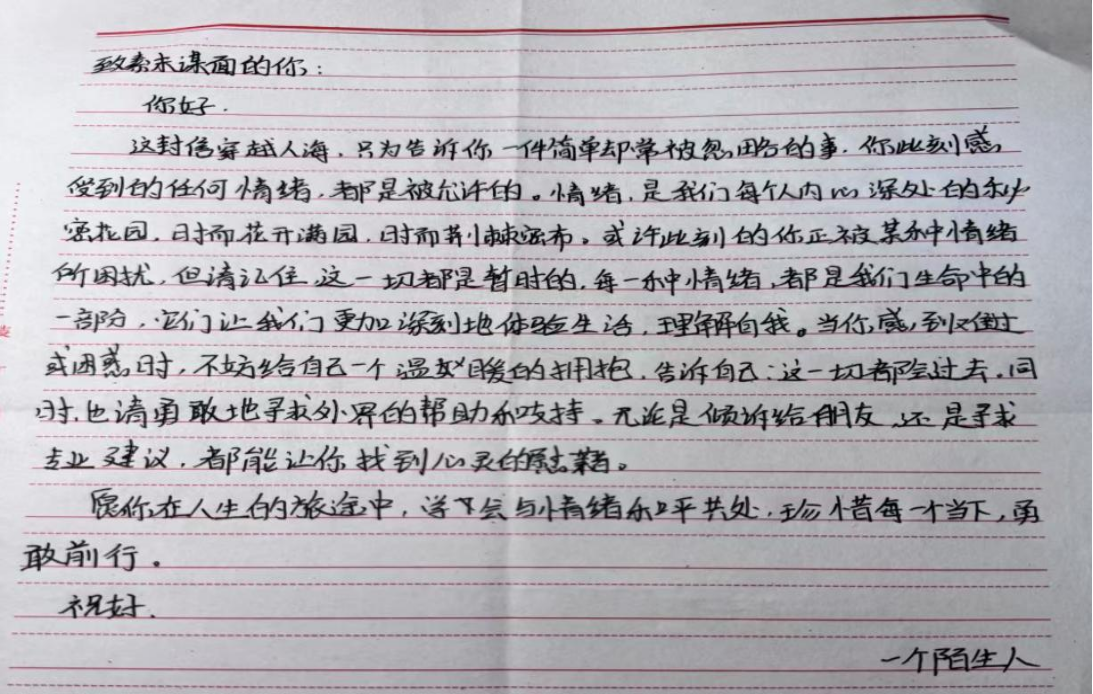 致素未谋面的你：
你好.
这封信穿越人海，只为告诉你一件简单却常被忽略的事.你此刻感
受到的任何情绪，都是被允许的。情绪，是我们每个人内心深处的秘
密花园，时而花开满园，时而荆棘密布。或许此刻的你正被某种情绪
所困扰，但请记住，这一切都是暂时的，每一种情绪，都是我们生命中的
一部分，它们让我们更加深刻地体验生活，理解自我。当你感到疲惫
或困惑时，不妨给自己一个温暖的拥抱，告诉自己：这一切都会过去，同
时，也请勇敢地寻求外界的帮助和支持。无论是倾诉给朋友，还是寻求
专业建议，都能让你找到心灵的慰藉。
愿你在人生的旅途中，学会与情绪和平共处，珍惜每一个当下，勇
敢前行。
祝好.
一个陌生人